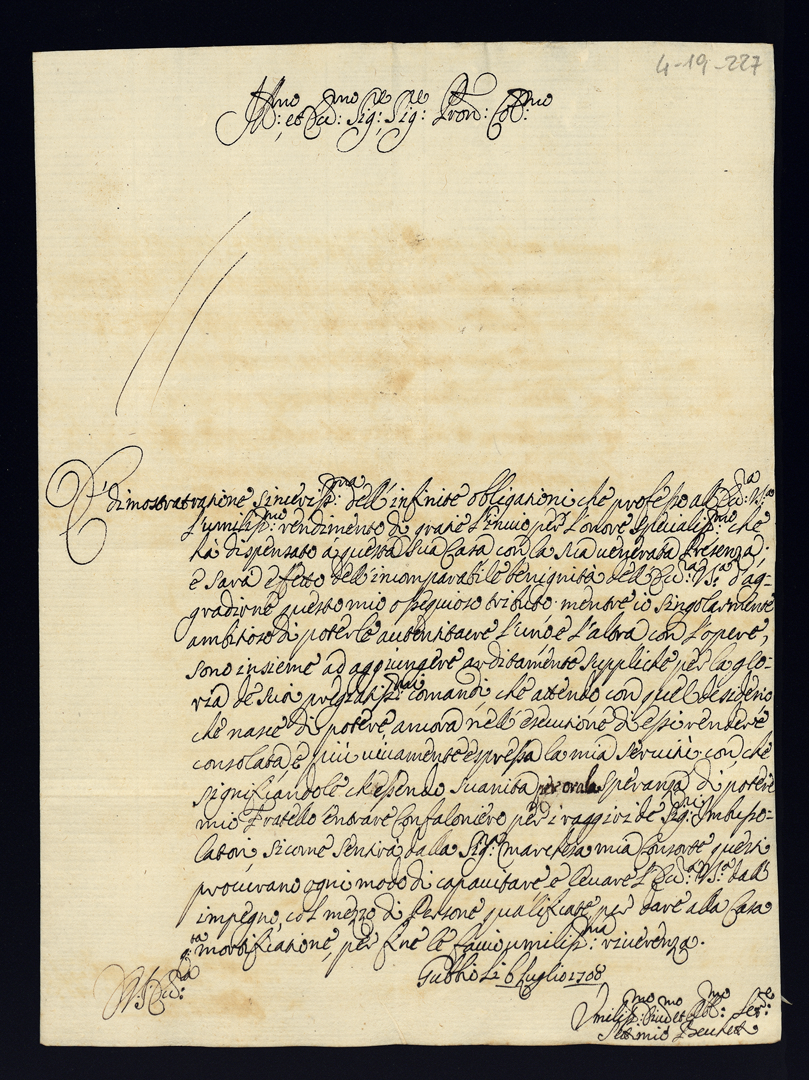 4-19-227
Ill:mo et Ecc:mo Sig:re Sig:re Pron: Col:mo
E' dimostratione sinceriss:ma dell'infinite obligationi che professo all'Ecc:za V:ra
l'umiliss:mo rendimento di gratie l'invio per l'onore specialiss:mo che
hà dispensato a questa sua Casa con la sua venerata Presenza;
e sarà effetto dell'incomparabile benignità dell'Ecc:za V:ra d'ag-
gradirne questo mio ossequioso tributo mentre io singolarmente
ambitioso di poterle autenticare l'uno e l'altra con l'opere,
sono insieme ad aggiungere arditamente suppliche per la glo-
ria de suoi pregiatiss:mi comandi, che attendo con quel desiderio
che nasce di potere ancora nell'esecutione di essi rendere
consolata e più vivamente espressa la mia servitù con che
significandole ch'essendo svanita per ora la speranza di potere
mio Fratello entrare Confaloniere per i raggiri de Sig:ri Imbusso-
latori, sicome sentirà dalla Sig:ra Marchesa mia Consorte questi
procurano ogni modo di capacitare e levare l'Ecc:za V:ra dall'
impegno, col mezzo di Persone qualificate per dare alla Casa
q:ta mortificatione, per fine le faccio umiliss:ma riverenza.
Gubbio li 6 Luglio 1708
V:ra Ecc:za
Umiliss:mo Div:mo et Obl:mo Ser:re